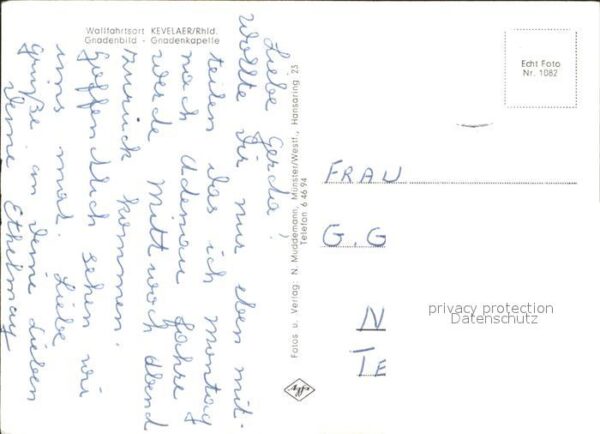 Wallfahrtsort KEVELAER/Rhld.
Gnadenbild - Gnadenkapelle
Liebe Gerda!
wollte Dir nur eben mit-
teilen das ich montag
nach Adenau fahre
werde Mittwoch Abend
zurück kommen.
hoffentlich sehen wir
uns mal. Liebe
Grüße an Deine Lieben
Deine Ethelmay
Fotos u. Verlag: N. Muddemann, Münster/Westf., Hansaring 23
Telefon 6 46 94
Echt Foto
Nr. 1082
FRAU
G. G
N
TE
privacy protection
Datenschutz